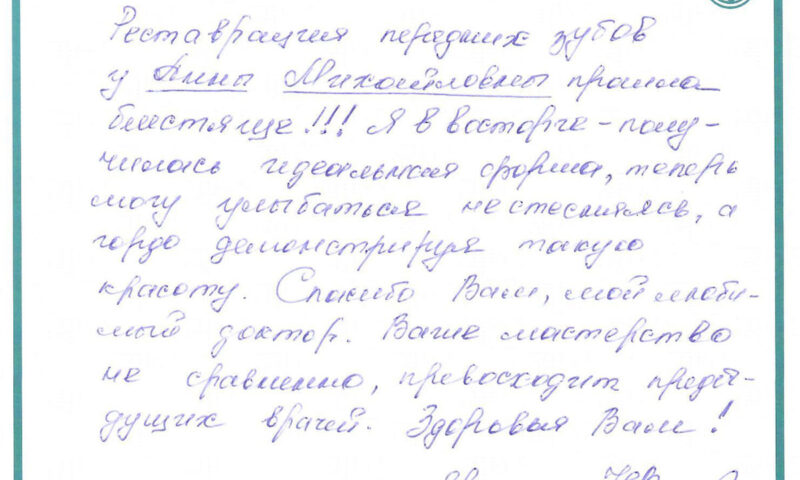 Реставрация передних зубов
у Анны Михайловны прошла
блестяще!!! Я в восторге - полу-
чилась идеальная форма, теперь
могу улыбаться не стесняясь, а
гордо демонстрируя такую
красоту. Спасибо Вам, мой люби-
мый доктор. Ваше мастерство
не сравнимо, превосходит преды-
дущих врачей. Здоровья Вам!